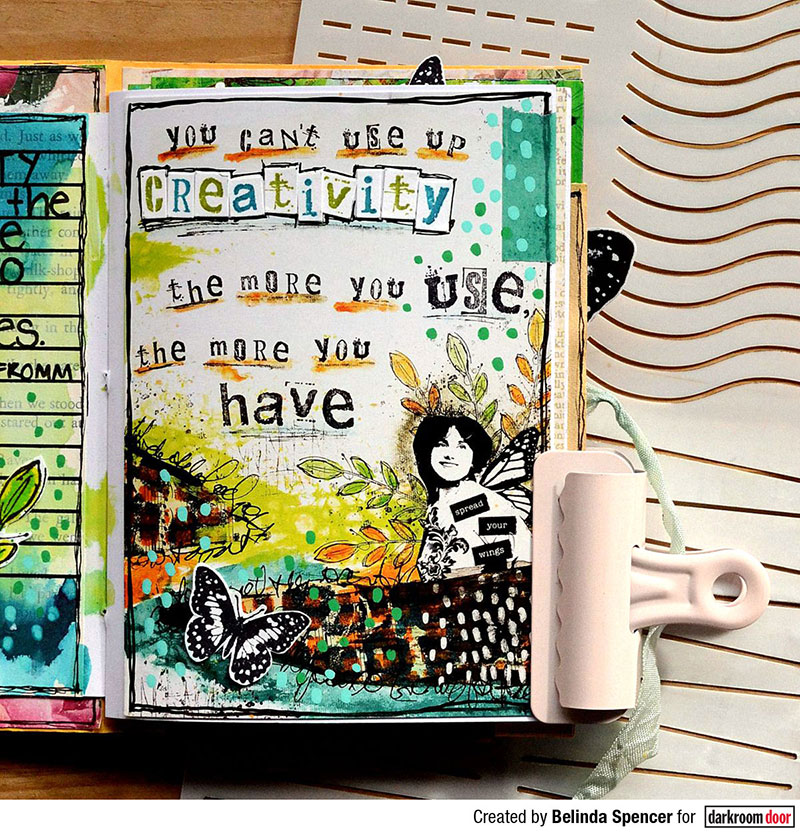 you can't use up
creativity
the more you use,
the more you
have
spread
your
wings
TY
the
es.
FROMM
Created by Belinda Spencer for darkroom door